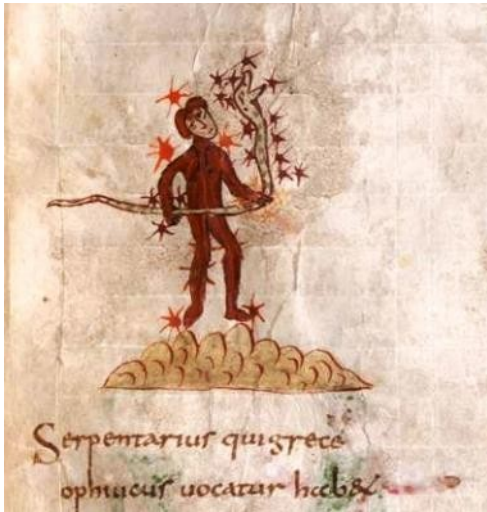 Serpentarius qui grece
ophiucus uocatur habet